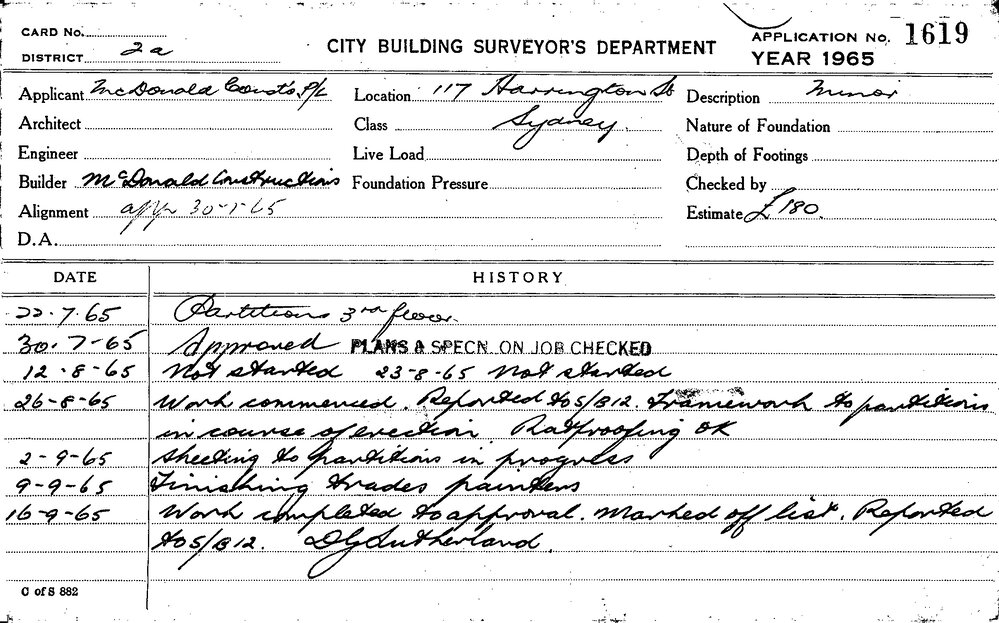 CARD No.
DISTRICT 2a
CITY BUILDING SURVEYOR'S DEPARTMENT
APPLICATION No. 1619
YEAR 1965
Applicant McDonald Consts. P/L Location 117 Harrington St Description Minor
Architect Class Sydney. Nature of Foundation
Engineer Live Load Depth of Footings
Builder McDonald Constructions Foundation Pressure Checked by
Alignment app 30-7-65 Estimate £180.
D.A.
DATE HISTORY
22.7.65 Partitions 3rd floor.
30.7-65 Approved PLANS & SPECN. ON JOB CHECKED
12-8-65 Not started 23-8-65 Not started
26-8-65 Work commenced. Reported to S/B 12. Framework to partitions
in course of erection. Ratproofing OK
2-9-65 Sheeting to partitions in progress
9-9-65 Finishing trades painters
16-9-65 Work completed to approval. Marked off list. Reported
to S/B 12. DG Sutherland.
C of S 882